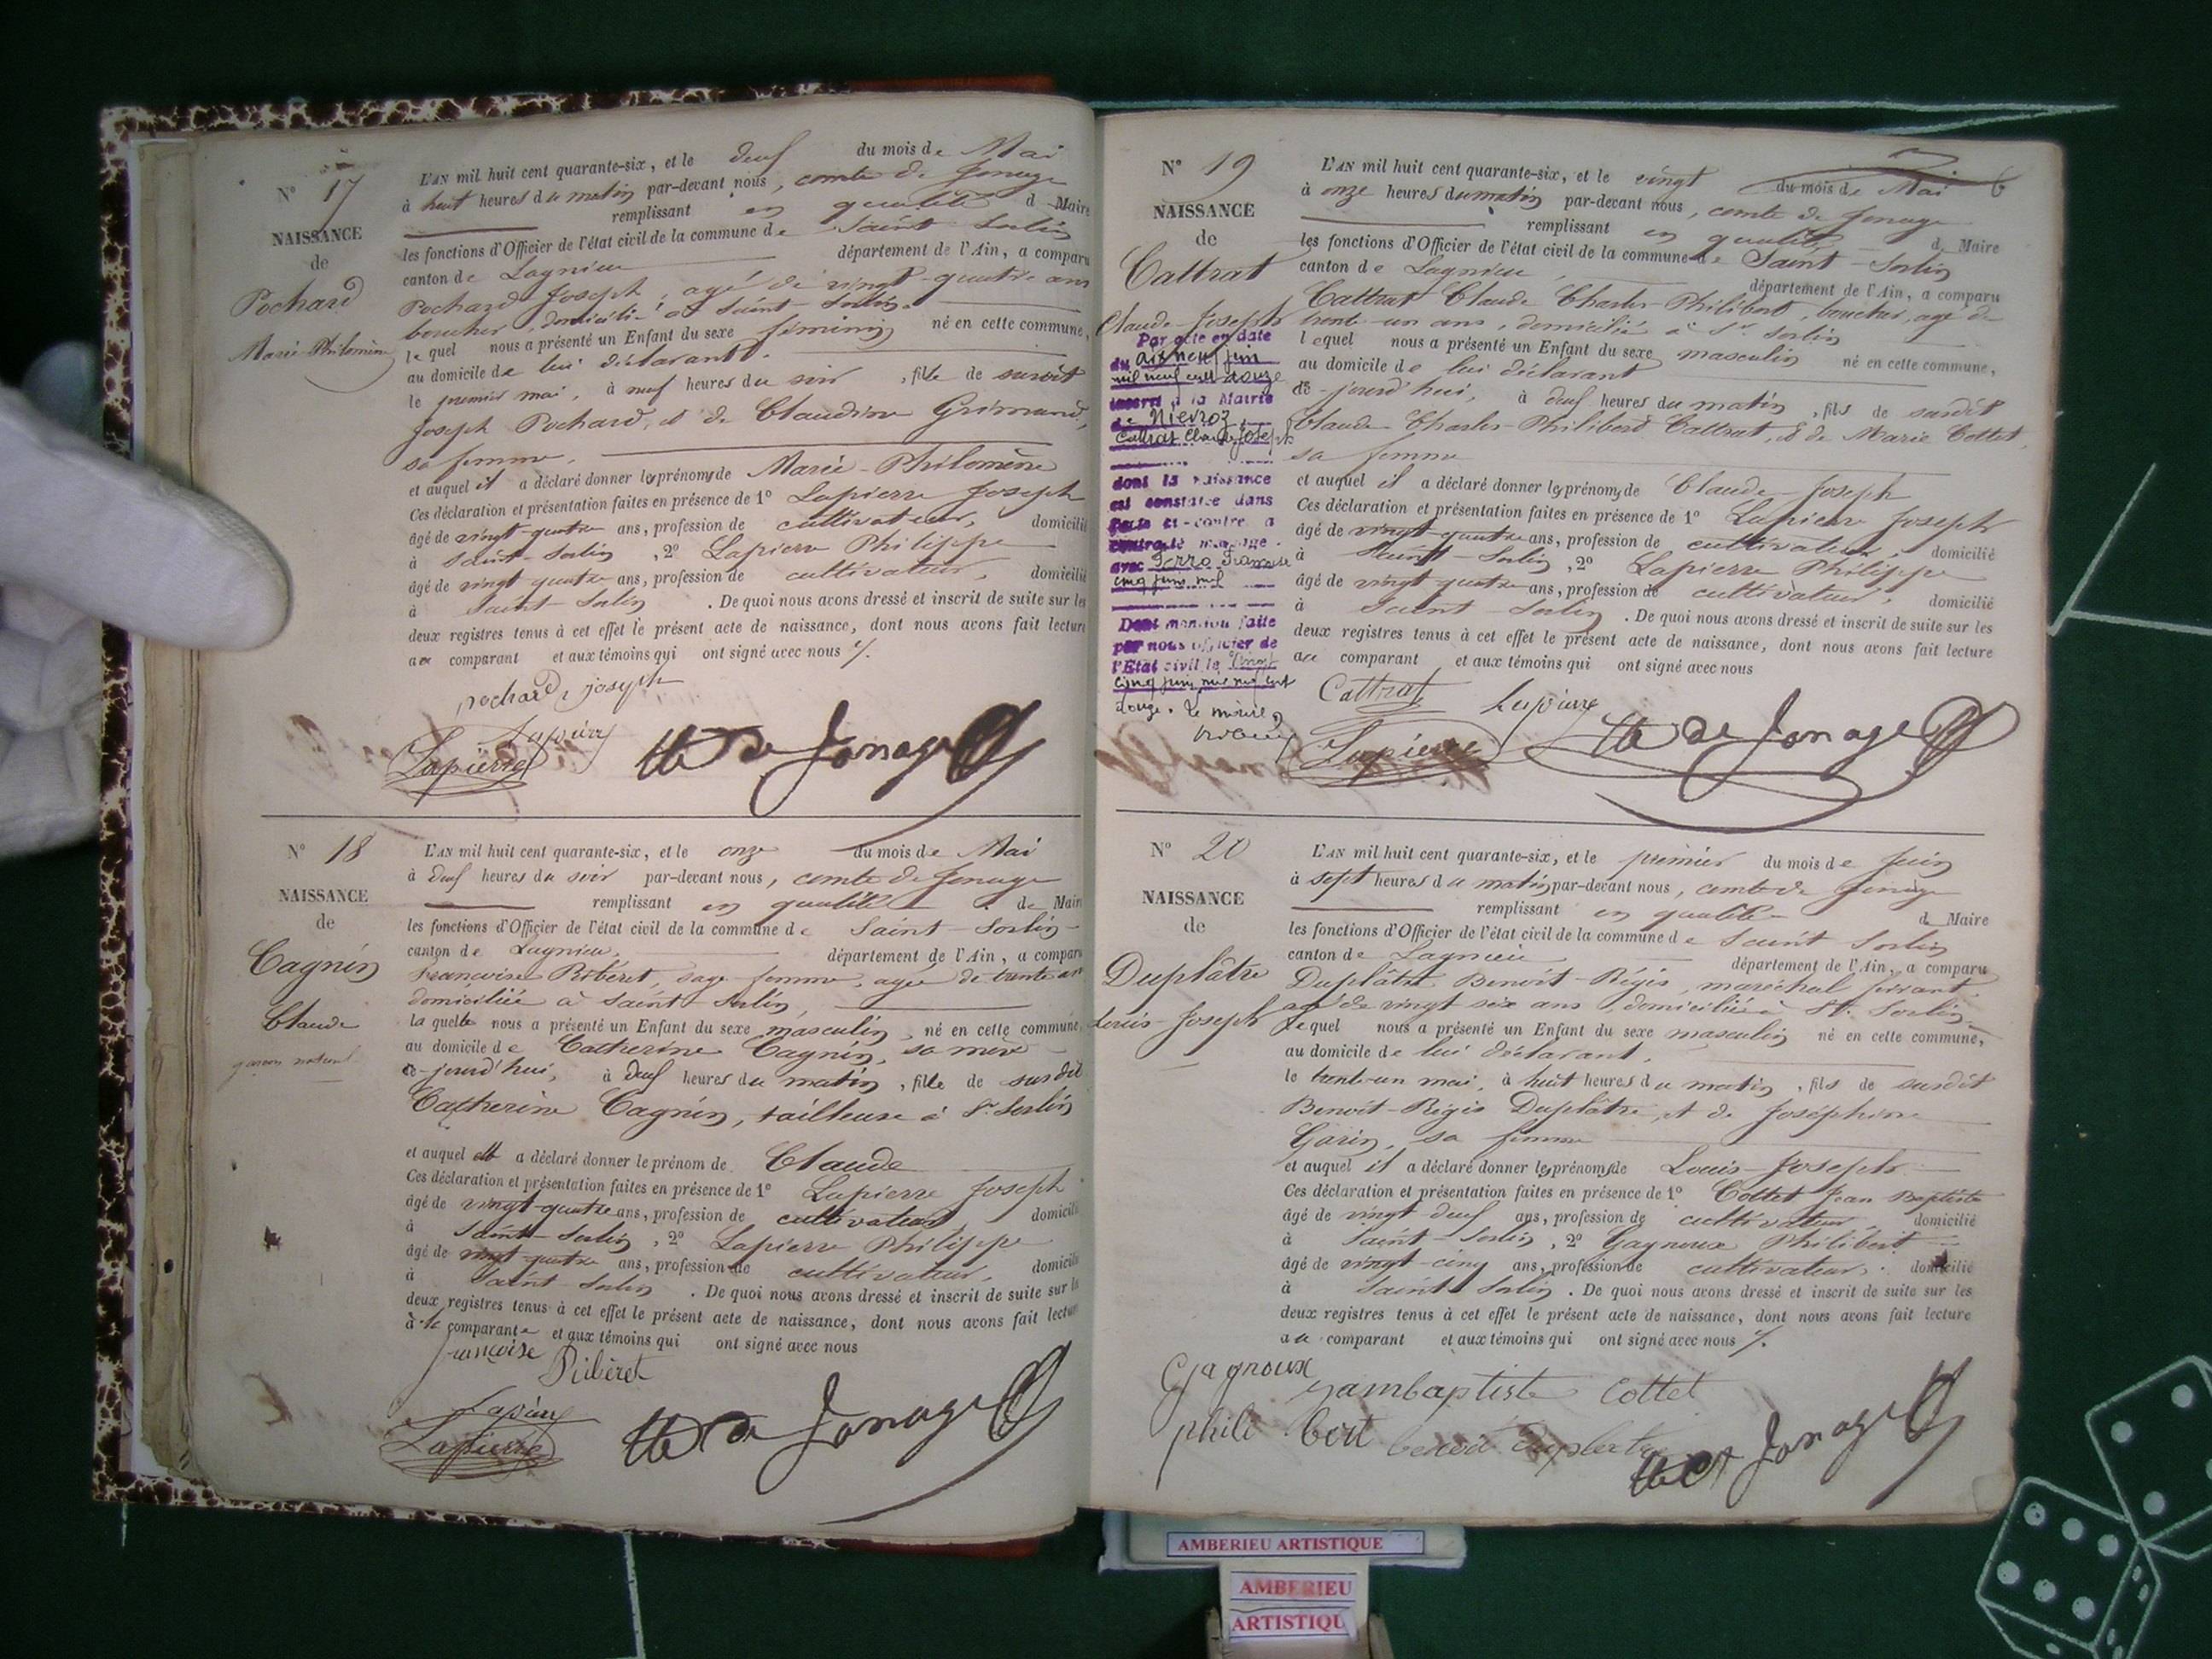 N° 17
NAISSANCE
de
Pochard
Marie Philomène
L'AN mil huit cent quarante-six, et le deux du mois de Mai
à huit heures du matin par-devant nous, comte de Jonage
remplissant en qualité de Maire
les fonctions d'Officier de l'état civil de la commune de Saint Sorlin
canton de Lagnieu département de l'Ain, a comparu
Pochard Joseph, agé de vingt-quatre ans
boucher, domicilié à Saint-Sorlin
lequel nous a présenté un Enfant du sexe féminin né en cette commune,
au domicile de lui déclarant.
le premier mai, à neuf heures du soir, fille de susdit
Joseph Pochard, et de Claudine Grimand,
sa femme.
et auquel il a déclaré donner les prénoms de Marie-Philomène
Ces déclaration et présentation faites en présence de 1° Lapierre Joseph
âgé de vingt-quatre ans, profession de cultivateur, domicilié
à Saint-Sorlin, 2° Lapierre Philippe
âgé de vingt quatre ans, profession de cultivateur, domicilié
à Saint-Sorlin. De quoi nous avons dressé et inscrit de suite sur les
deux registres tenus à cet effet le présent acte de naissance, dont nous avons fait lecture
au comparant et aux témoins qui ont signé avec nous
pochard joseph
Lapierre
Lapierre
de Jonage
N° 18
NAISSANCE
de
Cagnin
Claude
garçon naturel
L'AN mil huit cent quarante-six, et le onze du mois de Mai
à deux heures du soir par-devant nous, comte de Jonage
remplissant en qualité de Maire
les fonctions d'Officier de l'état civil de la commune de Saint-Sorlin
canton de Lagnieu, département de l'Ain, a comparu
Françoise Ribéret, sage femme, agée de trente ans
domiciliée à Saint-Sorlin,
laquelle nous a présenté un Enfant du sexe masculin, né en cette commune,
au domicile de Catherine Cagnin, sa mère
ce-jourd'hui, à deux heures du matin, fille de susdit
Catherine Cagnin, tailleuse à St. Sorlin
et auquel elle a déclaré donner le prénom de Claude
Ces déclaration et présentation faites en présence de 1° Lapierre Joseph
âgé de vingt-quatre ans, profession de cultivateur domicilié
à Saint-Sorlin, 2° Lapierre Philippe
âgé de vingt quatre ans, profession de cultivateur, domicilié
à Saint-Sorlin. De quoi nous avons dressé et inscrit de suite sur les
deux registres tenus à cet effet le présent acte de naissance, dont nous avons fait lecture
à la comparante et aux témoins qui ont signé avec nous
françoise Ribéret
Lapierre
Lapierre
de Jonage
6
N° 19
NAISSANCE
de
Cattrat
Claude Joseph
Par acte en date
du dix neuf juin
mil neuf cent douze
inscrit à la Mairie
de Nievroz
Cattrat Claude Joseph
dont la naissance
est constatée dans
l'acte ci-contre a
contracté mariage
avec
Dont mention faite
par nous officier de
l'Etat civil le vingt
cinq juin mil neuf cent
douze. Le maire,
L'AN mil huit cent quarante-six, et le vingt du mois de Mai
à onze heures du matin par-devant nous, comte de Jonage
remplissant en qualité de Maire
les fonctions d'Officier de l'état civil de la commune de Saint-Sorlin
canton de Lagnieu département de l'Ain, a comparu
Cattrat Claude Charles-Philibert, boucher, agé de
trente-un ans, domicilié à St. Sorlin
lequel nous a présenté un Enfant du sexe masculin né en cette commune,
au domicile de lui déclarant
ce-jourd'hui, à deux heures du matin, fils de susdit
Claude-Charles-Philibert Cattrat, et de Marie Cottet,
sa femme
et auquel il a déclaré donner les prénoms de Claude-Joseph
Ces déclaration et présentation faites en présence de 1° Lapierre Joseph
âgé de vingt-quatre ans, profession de cultivateur, domicilié
à Saint-Sorlin, 2° Lapierre Philippe
âgé de vingt-quatre ans, profession de cultivateur, domicilié
à Saint-Sorlin. De quoi nous avons dressé et inscrit de suite sur les
deux registres tenus à cet effet le présent acte de naissance, dont nous avons fait lecture
au comparant et aux témoins qui ont signé avec nous
Cattrat Lapierre
Lapierre de Jonage
N° 20
NAISSANCE
de
Duplâtre
Louis-Joseph
L'AN mil huit cent quarante-six, et le premier du mois de Juin
à sept heures du matin par-devant nous, comte de Jonage
remplissant en qualité de Maire
les fonctions d'Officier de l'état civil de la commune de Saint Sorlin
canton de Lagnieu département de l'Ain, a comparu
Duplâtre Benoit-Régis, maréchal ferrant,
agé de vingt six ans, domicilié à St. Sorlin
lequel nous a présenté un Enfant du sexe masculin né en cette commune,
au domicile de lui déclarant,
le trente-un mai, à huit heures du matin, fils de susdit
Benoit-Régis Duplâtre, et de Joséphine
Garin, sa femme
et auquel il a déclaré donner les prénoms de Louis-Joseph
Ces déclaration et présentation faites en présence de 1° Cottet Jean Baptiste
âgé de vingt deux ans, profession de cultivateur, domicilié
à Saint-Sorlin, 2° Gagneux Philibert
âgé de vingt-cinq ans, profession de cultivateur, domicilié
à Saint Sorlin. De quoi nous avons dressé et inscrit de suite sur les
deux registres tenus à cet effet le présent acte de naissance, dont nous avons fait lecture
au comparant et aux témoins qui ont signé avec nous
Gagnoux jambaptiste Cottet
phili bert benoit
de Jonage
AMBERIEU ARTISTIQUE
AMBERIEU
ARTISTIQU